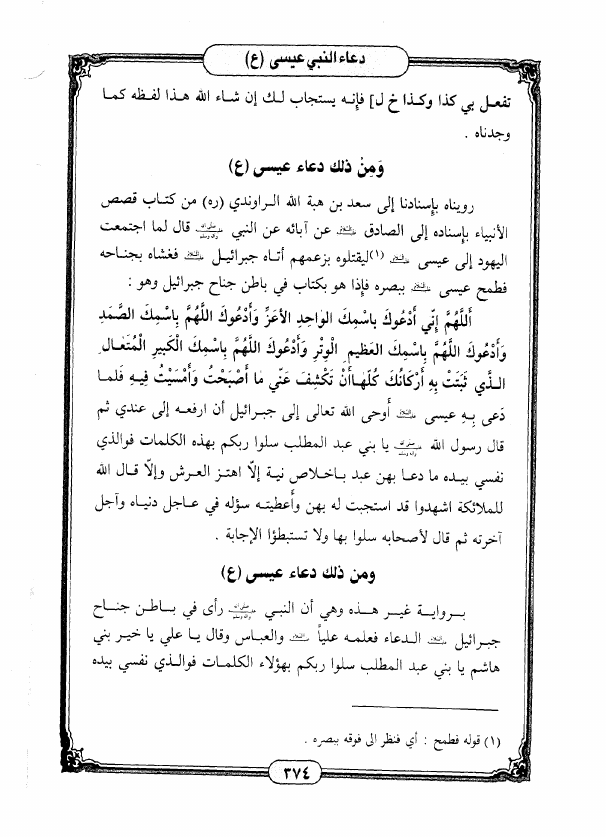 دعاء النبي عيسى (ع)
تفعل بي كذا وكذا خ ل] فإنه يستجاب لك إن شاء الله هذا لفظه كما
وجدناه .
وَمِنْ ذلك دعاء عيسى (ع)
رويناه بإسنادنا إلى سعد بن هبة الله الراوندي (ره) من كتاب قصص
الأنبياء بإسناده إلى الصادق عن آبائه عن النبي قال لما اجتمعت
اليهود إلى عيسى (١) ليقتلوه بزعمهم أتاه جبرائيل فغشاه بجناحه
فطمح عيسى ببصره فإذا هو بكتاب في باطن جناح جبرائيل وهو :
أَللَّهُمَّ إِنِّي أَدْعُوكَ بِاسْمِكَ الوَاحِدِ الأَعَزِّ وَأَدْعُوكَ اللَّهُمَّ بِاسْمِكَ الصَّمَدِ
وَأَدْعُوكَ اللَّهُمَّ بِاسْمِكَ العَظِيمِ الْوِتْرِ وَأَدْعُوكَ اللَّهُمَّ بِاسْمِكَ الْكَبِيرِ الْمُتَعَالِ
الَّذِي ثَبَتَتْ بِهِ أَرْكَانُكَ كُلُّهَا أَنْ تَكْشِفَ عَنِّي مَا أَصْبَحْتُ وَأَمْسَيْتُ فِيهِ فلما
دعى بِهِ عيسى أوحى الله تعالى إلى جبرائيل أن ارفعه إلى عندي ثم
قال رسول الله يا بني عبد المطلب سلوا ربكم بهذه الكلمات فوالذي
نفسي بيده ما دعا بهن عبد باخلاص نية إلّا اهتز العرش وإلّا قال الله
للملائكة اشهدوا قد استجبت له بهن وأعطيته سؤله في عاجل دنياه وآجل
آخرته ثم قال لأصحابه سلوا بها ولا تستبطؤا الإجابة .
ومن ذلك دعاء عيسى (ع)
برواية غير هذه وهي أن النبي رأى في باطن جناح
جبرائيل الدعاء فعلمه علياً والعباس وقال يا علي يا خير بني
هاشم يا بني عبد المطلب سلوا ربكم بهؤلاء الكلمات فوالذي نفسي بيده
(١) قوله فطمح : أي فنظر الى فوقه ببصره .
٣٧٤